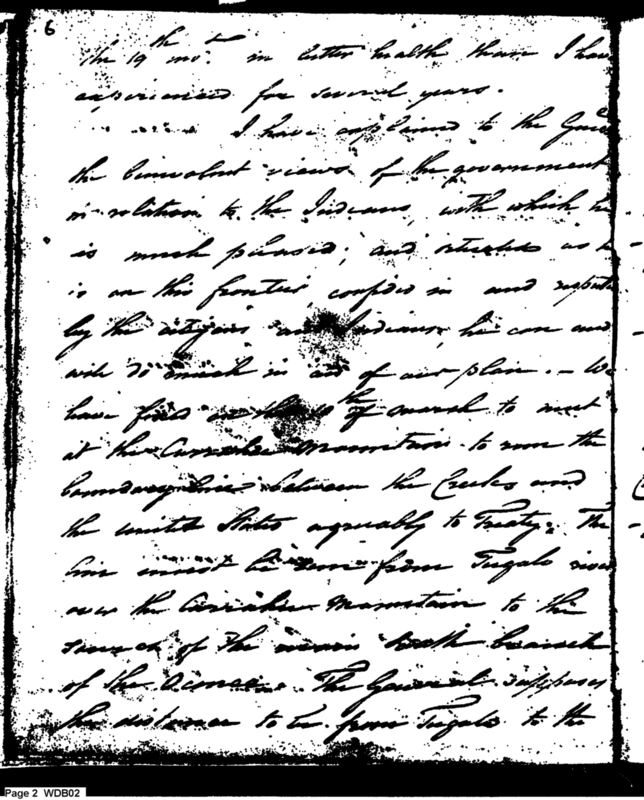 6
the 19th mo. in better health than I have
experienced for several years.
I have explained to the
the benevolent views of the government
in relation to the Indians, with which he
is much pleased; and as he
is on this frontier, confided in and
by the citizens and Indians, he can and
will do much in aid of our plan. — We
have fixed on the 10th of march to meet
at the Currahee mountain to run the
boundary line between the Creeks and
the united States agreeably to Treaty. The
line must be run from Tugalo river
over the Currahee mountain to the
source of the main South branch
of the Oconee. The General supposes
the distance to be from Tugalo to the
Page 2 WDB02